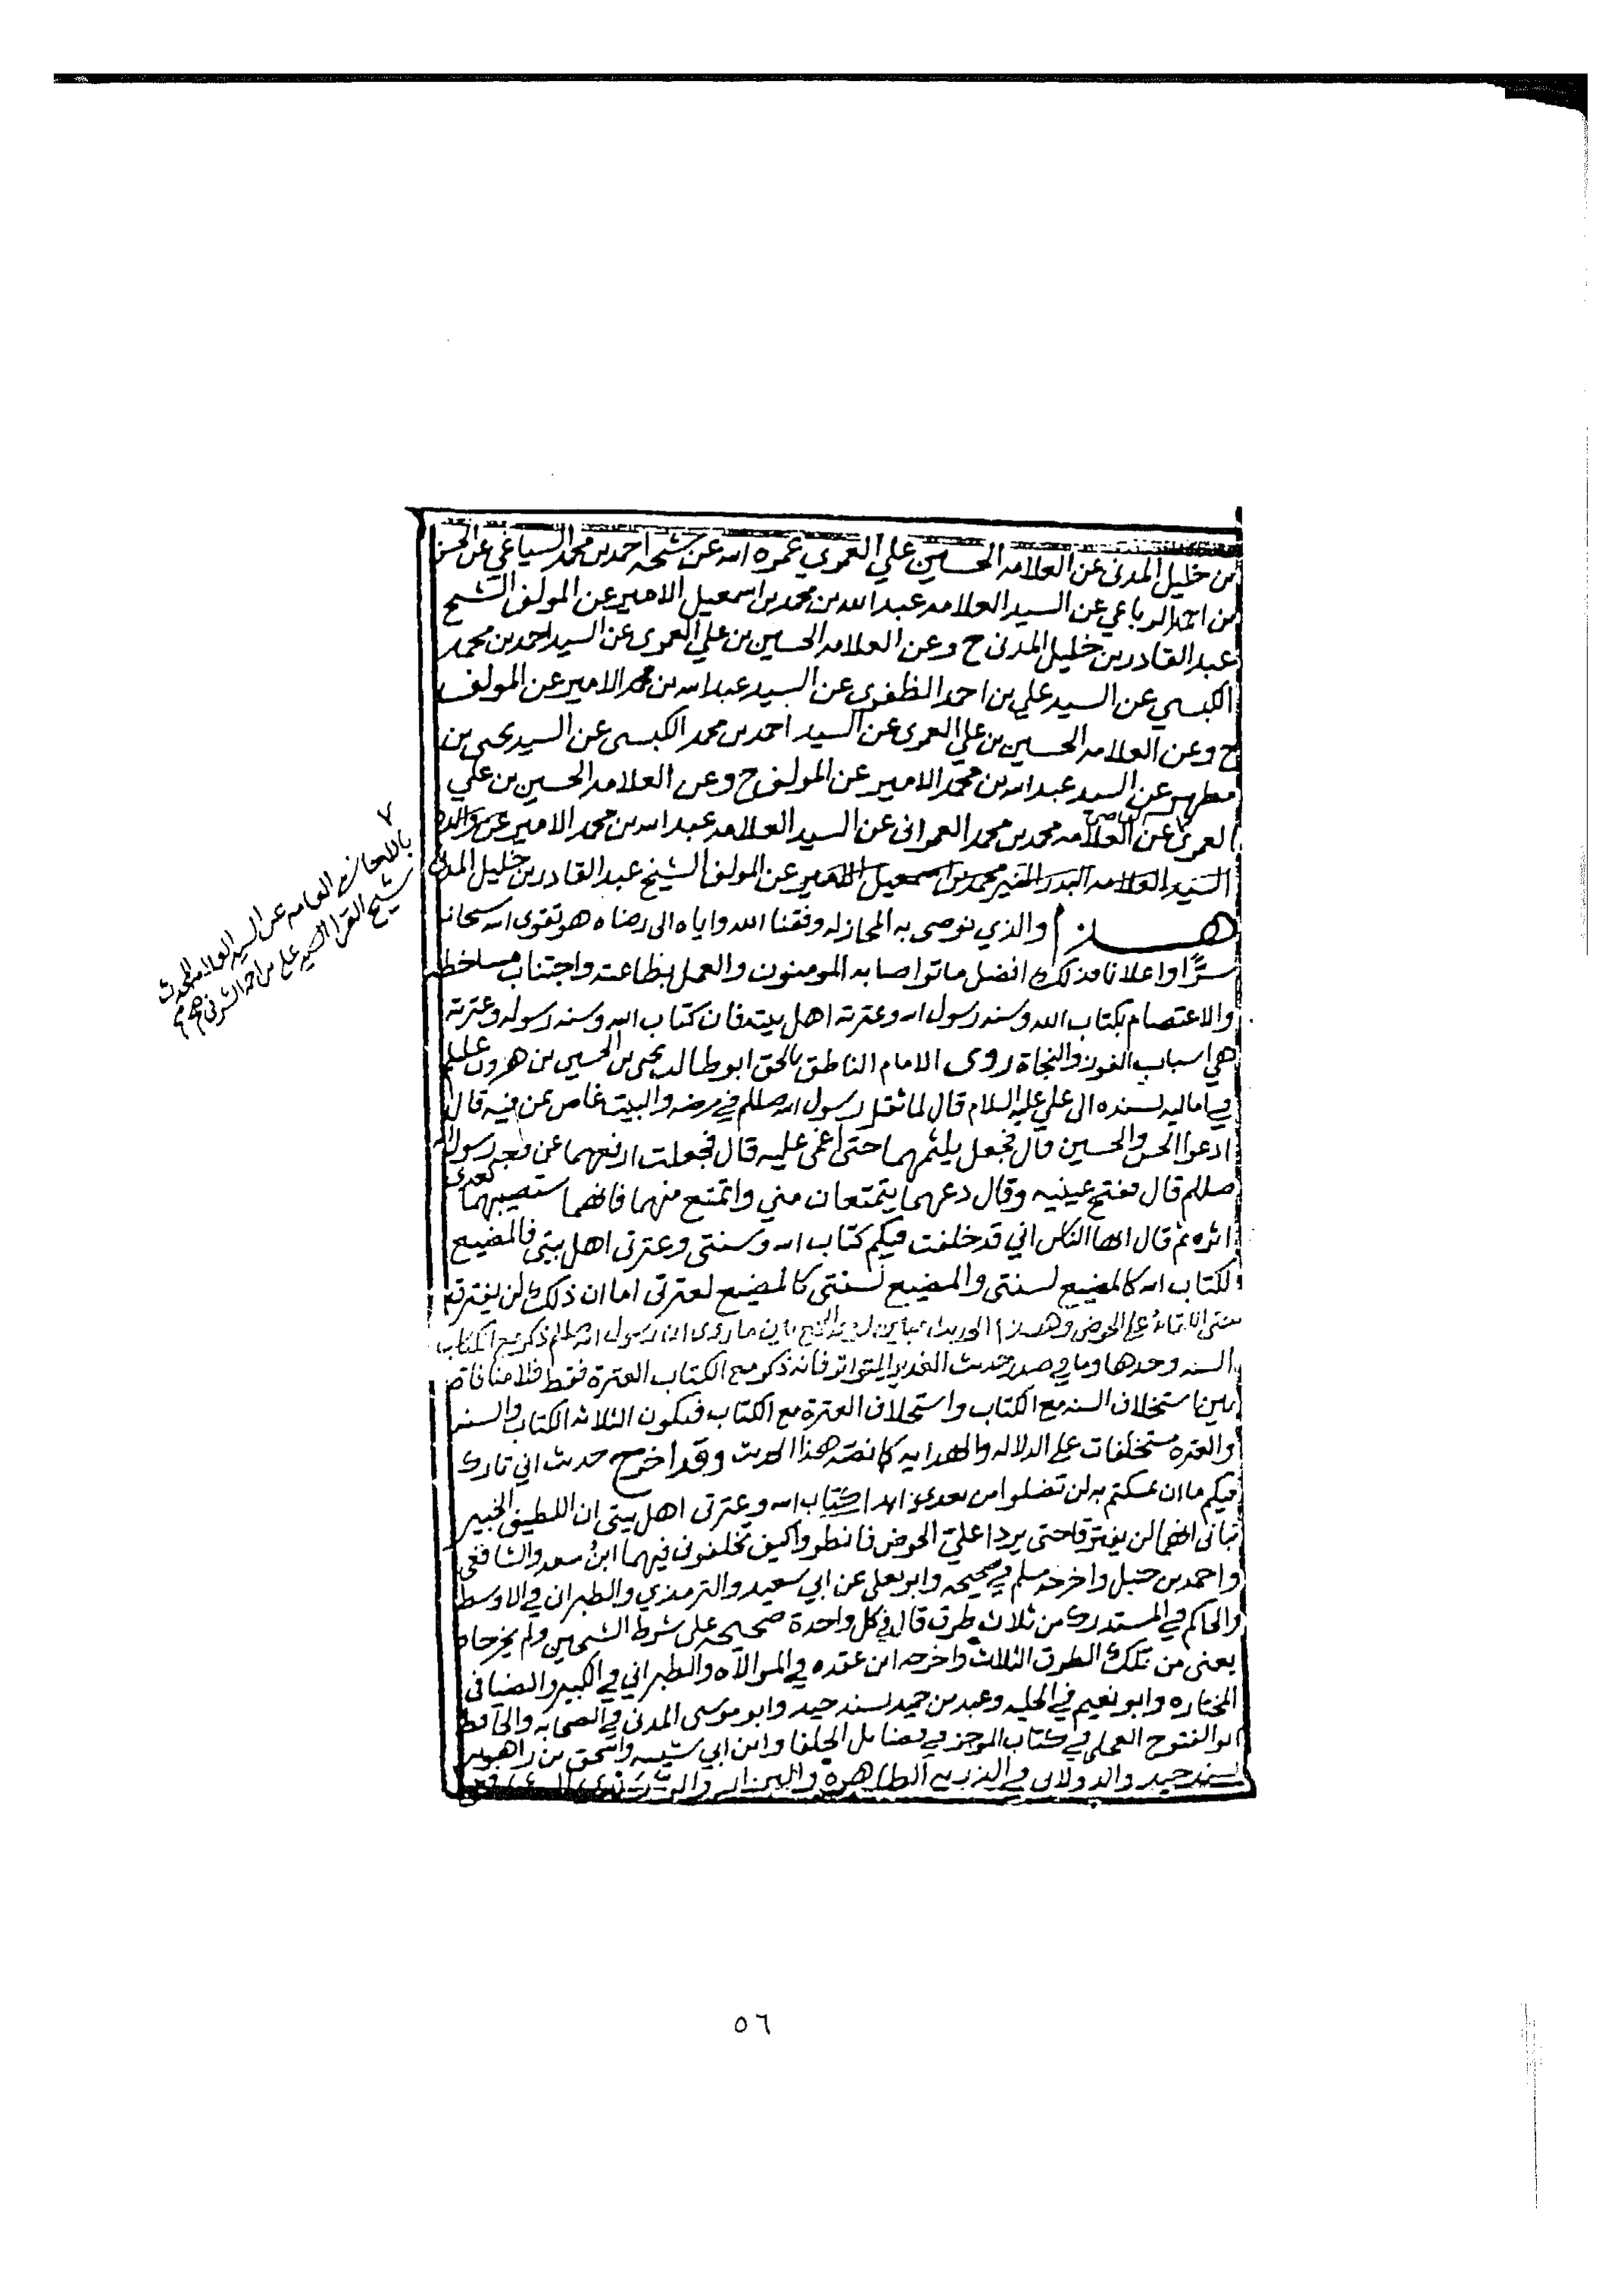 بن خليل المدني عن العلامه الحسين علي العمري عمره الله عن شيخه احمد بن محمد السياغي عن الحسن
بن احمد الرباعي عن السيد العلامه عبد الله بن محمد بن اسمعيل الامير عن المولف الشيخ
عبد القادر بن خليل المدني ح وعن العلامه الحسين بن علي العمري عن السيد احمد بن محمد
الكبسي عن السيد علي بن احمد الظفري عن السيد عبد الله بن محمد الامير عن المولف
ح وعن العلامه الحسين بن علي العمري عن السيد احمد بن محمد الكبسي عن السيد يحيى بن
مطهر عن السيد عبد الله بن محمد الامير عن المولف ح وعن العلامه الحسين بن علي
العمري عن القاضي العلامه محمد بن محمد العمراني عن السيد العلامه عبد الله بن محمد الامير عن والده
السيد العلامه البدر المنير محمد بن اسمعيل الامير عن المولف الشيخ عبد القادر بن خليل المدني
هذا والذي نوصي به المجاز له وفقنا الله واياه الى رضاه هو تقوى الله سبحانه
سرًّا واعلانا فذلك افضل ما تواصا به المومنون والعمل بطاعته واجتناب مساخطه
والاعتصام بكتاب الله وسنه رسول الله وعترته اهل بيته فان كتاب الله وسنه رسوله وعترته
هي اسباب الفوز والنجاة روى الامام الناطق بالحق ابو طالب يحيى بن الحسين بن هرون عليلم
في اماليه بسنده الى علي عليه السلام قال لما ثقل رسول الله صللم في مرضه والبيت غاص عن فيه قال
ادعوا الحسن والحسين قال فجعل يلثمهما حتى اغمي عليه قال فجعلت ارفعهما عن وجه رسول الله
صللم قال ففتح عينيه وقال دعهما يتمتعان مني واتمتع منهما فانهما ستصيبهما بعدي
اثره ثم قال ايها الناس اني قد خلفت فيكم كتاب الله وسنتي وعترتي اهل بيتي فالمضيع
لكتاب الله كالمضيع لسنتي والمضيع لسنتي كالمضيع لعترتي اما ان ذلك لن يفترقا
حتى اللقاء على الحوض وهذا الحديث بين ما روى ان رسول الله صللم ذكر مع الكتاب
السنه وحدها وما في صدر حديث الغدير المتواتر فانه ذكر مع الكتاب العترة فقط فلا منافاه
بين استخلاف السنه مع الكتاب واستخلاف العترة مع الكتاب فيكون الثلاثه الكتاب والسنه
والعتره مستخلفات على الدلاله والهدايه كما نصه هذا الحديث وقد اخرج حديث اني تارك
فيكم ما ان تمسكتم به لن تضلوا من بعدي ابدا كتاب الله وعترتي اهل بيتي ان اللطيف الخبير
نباني انهما لن يفترقا حتى يردا علي الحوض فانظروا كيف تخلفوني فيهما ابن سعد والشافعي
واحمد بن حنبل واخرجه مسلم في صحيحه وابو يعلى عن ابي سعيد والترمذي والطبراني في الاوسط
والحاكم في المستدرك من ثلاث طرق قال في كل واحدة صحيحه على شرط الشيخين ولم يخرجاه
يعني من تلك الطرق الثلاث واخرجه ابن عقده في الموالاه والطبراني في الكبير والضيا في
المختاره وابو نعيم في الحليه وعبد بن حميد بسند جيد وابو موسى المدني في الصحابه والحافظ
ابو الفتوح العجلي في كتاب الموجز في فضايل الخلفا وابن ابي شيبه واسحق بن راهويه
بسند جيد والدولابي في الذريه الطاهرة والبزار
٧
بالاجازه العامه عن السيد العلامه المحدث
شيخ القرا السيد علي بن احمد الشرفي
٥٦